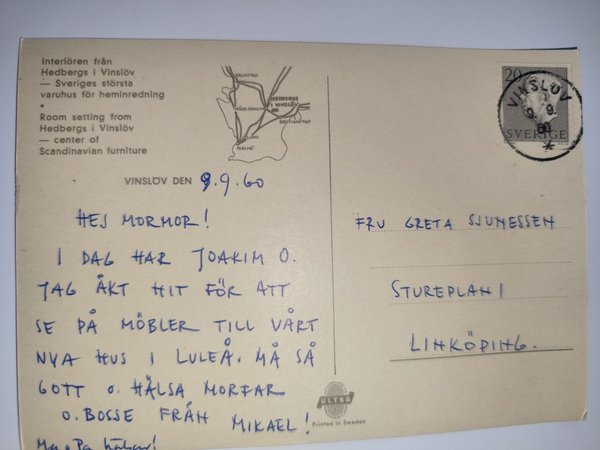 Interiören från
Hedbergs i Vinslöv
— Sveriges största
varuhus för heminredning
•
Room setting from
Hedbergs i Vinslöv
— center of
Scandinavian furniture
HALMSTAD
HÄSSLEHOLM
HEDBERGS
I VINSLÖV
KRISTIANSTAD
LUND
MALMÖ
VINSLÖV DEN 9.9.60
HEJ MORMOR!
I DAG HAR JOAKIM O.
JAG ÅKT HIT FÖR ATT
SE PÅ MÖBLER TILL VÅRT
NYA HUS I LULEÅ. MÅ SÅ
GOTT O. HÄLSA MORFAR
O. BOSSE FRÅN MIKAEL!
Ma o Pa hälsar!
20
SVERIGE
VINSLÖV
9.9.
60
*
FRU GRETA SJUNESSEN
STUREPLAN 1
LINKÖPING.
ULTRA
Printed in Sweden